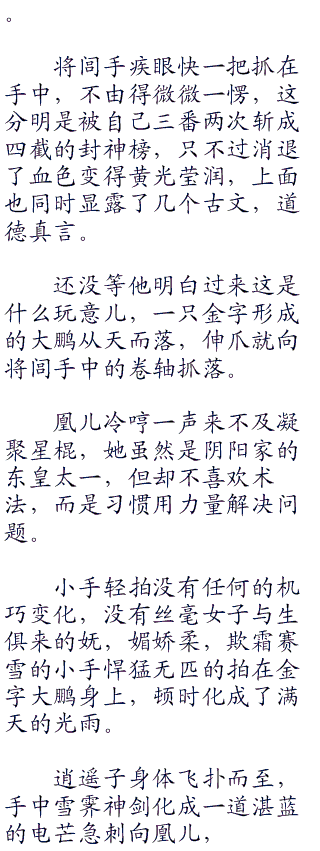 。
将闾手疾眼快一把抓在
手中，不由得微微一愣，这
分明是被自己三番两次斩成
四截的封神榜，只不过消退
了血色变得黄光莹润，上面
也同时显露了几个古文，道
德真言。
还没等他明白过来这是
什么玩意儿，一只金字形成
的大鹏从天而落，伸爪就向
将闾手中的卷轴抓落。
凰儿冷哼一声来不及凝
聚星棍，她虽然是阴阳家的
东皇太一，但却不喜欢术
法，而是习惯用力量解决问
题。
小手轻拍没有任何的机
巧变化，没有丝毫女子与生
俱来的妩，媚娇柔，欺霜赛
雪的小手悍猛无匹的拍在金
字大鹏身上，顿时化成了满
天的光雨。
逍遥子身体飞扑而至，
手中雪霁神剑化成一道湛蓝
的电芒急刺向凰儿，